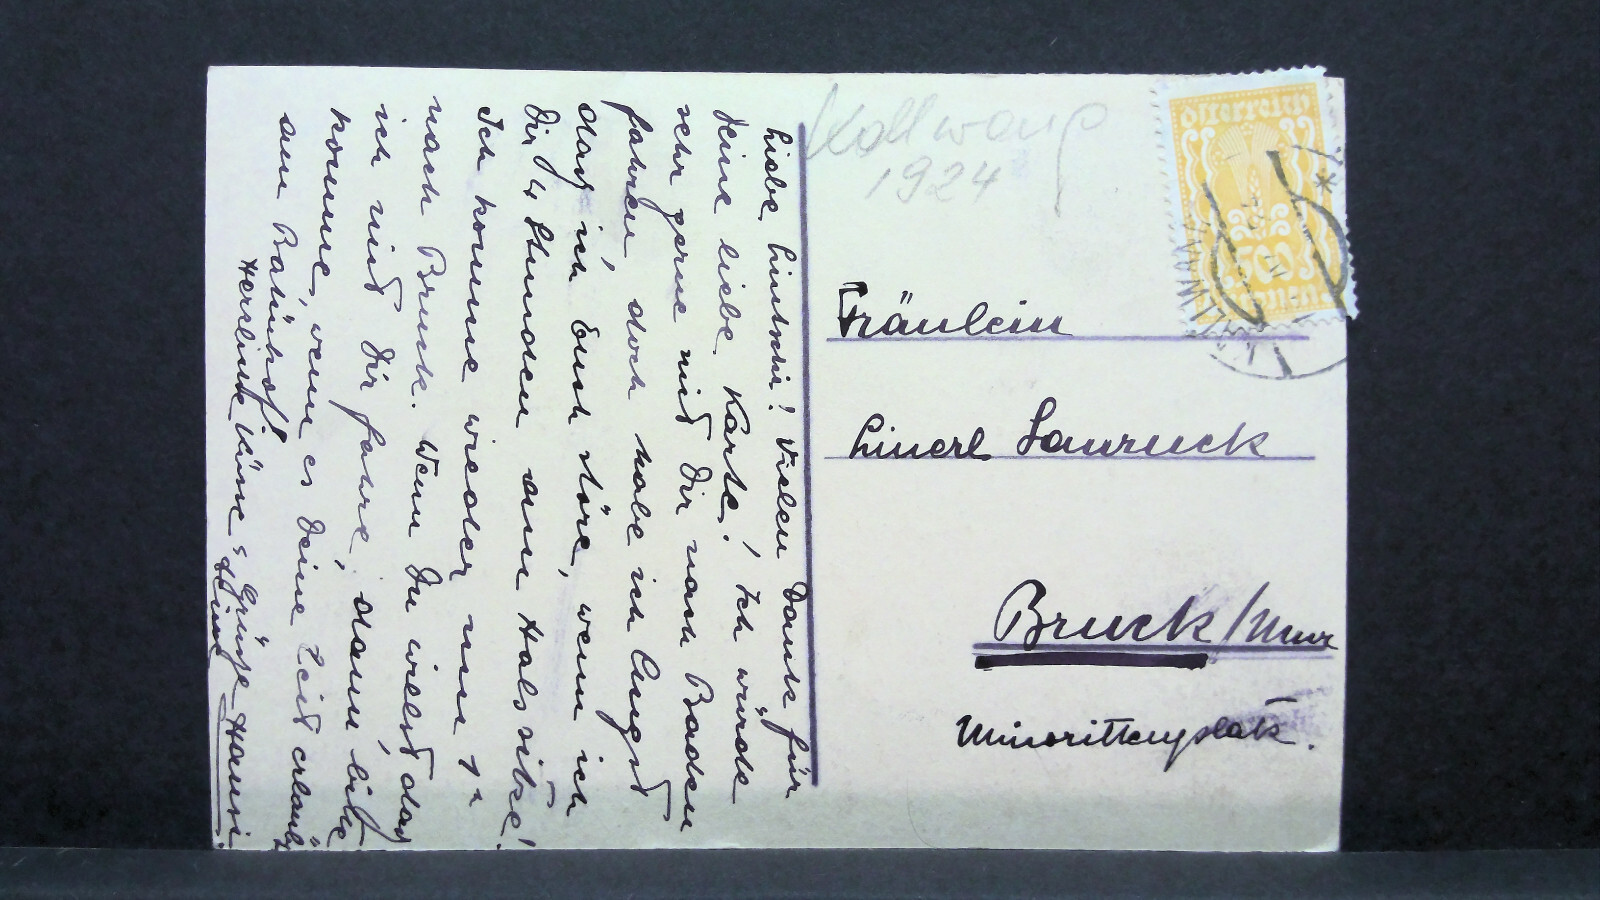 Liebe Lintschi! Vielen Dank für
Deine liebe Karte! Ich würde
sehr gerne mit Dir nach Baden
fahren, doch habe ich Angst
daß ich Euch störe, wenn ich
Dir 4 Stunden am Hals sitze!
Ich komme wieder um 1h
nach Bruck. Wenn Du willst daß
ich mit Dir fahre, dann bitte
komme, wenn es Deine Zeit erlaubt
am Bahnhof.
Herzliche Küsse & Grüße Hansi.
Kallwang
1924
Österreich
2500
Kronen
KALLWANG
Fräulein
Linerl
Bruck/Mur
Minoritenplatz.